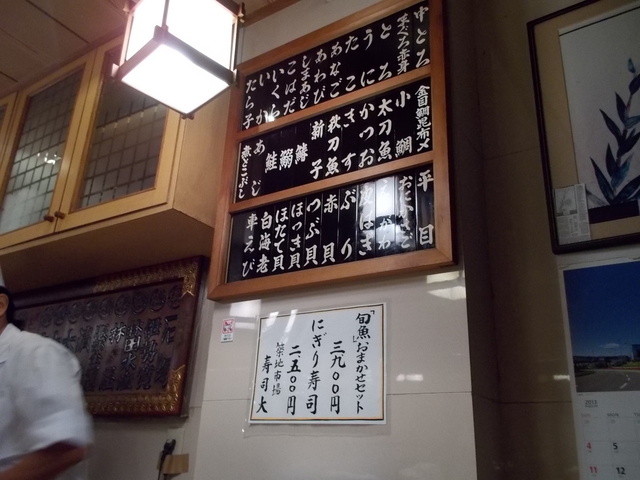 中とろ
まぐろ赤身
とろ
うに
たこ
あなご
あわび
しまあじ
こはだ
いくら
いか
たら子
金目鯛昆布〆
小鯛
太刀魚
かつお
きす
秋刀魚
新子
鰆
鰯
鮭
あじ
煮とこぶし
平目
ぶり
赤貝
つぶ貝
ほっき貝
ほたて貝
白海老
車えび
「旬魚」おまかせセット
三九〇〇円
にぎり寿司
二五〇〇円
築地市場
寿司大
4
5
11
12